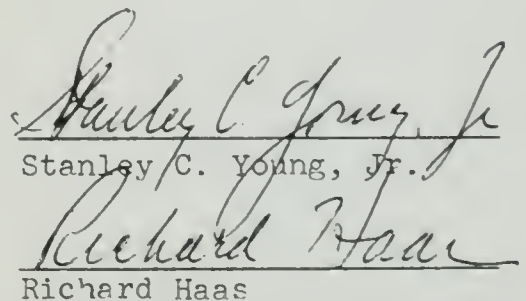 Stanley C. Young, Jr
Stanley C. Young, Jr.
Richard Haas
Richard Haas